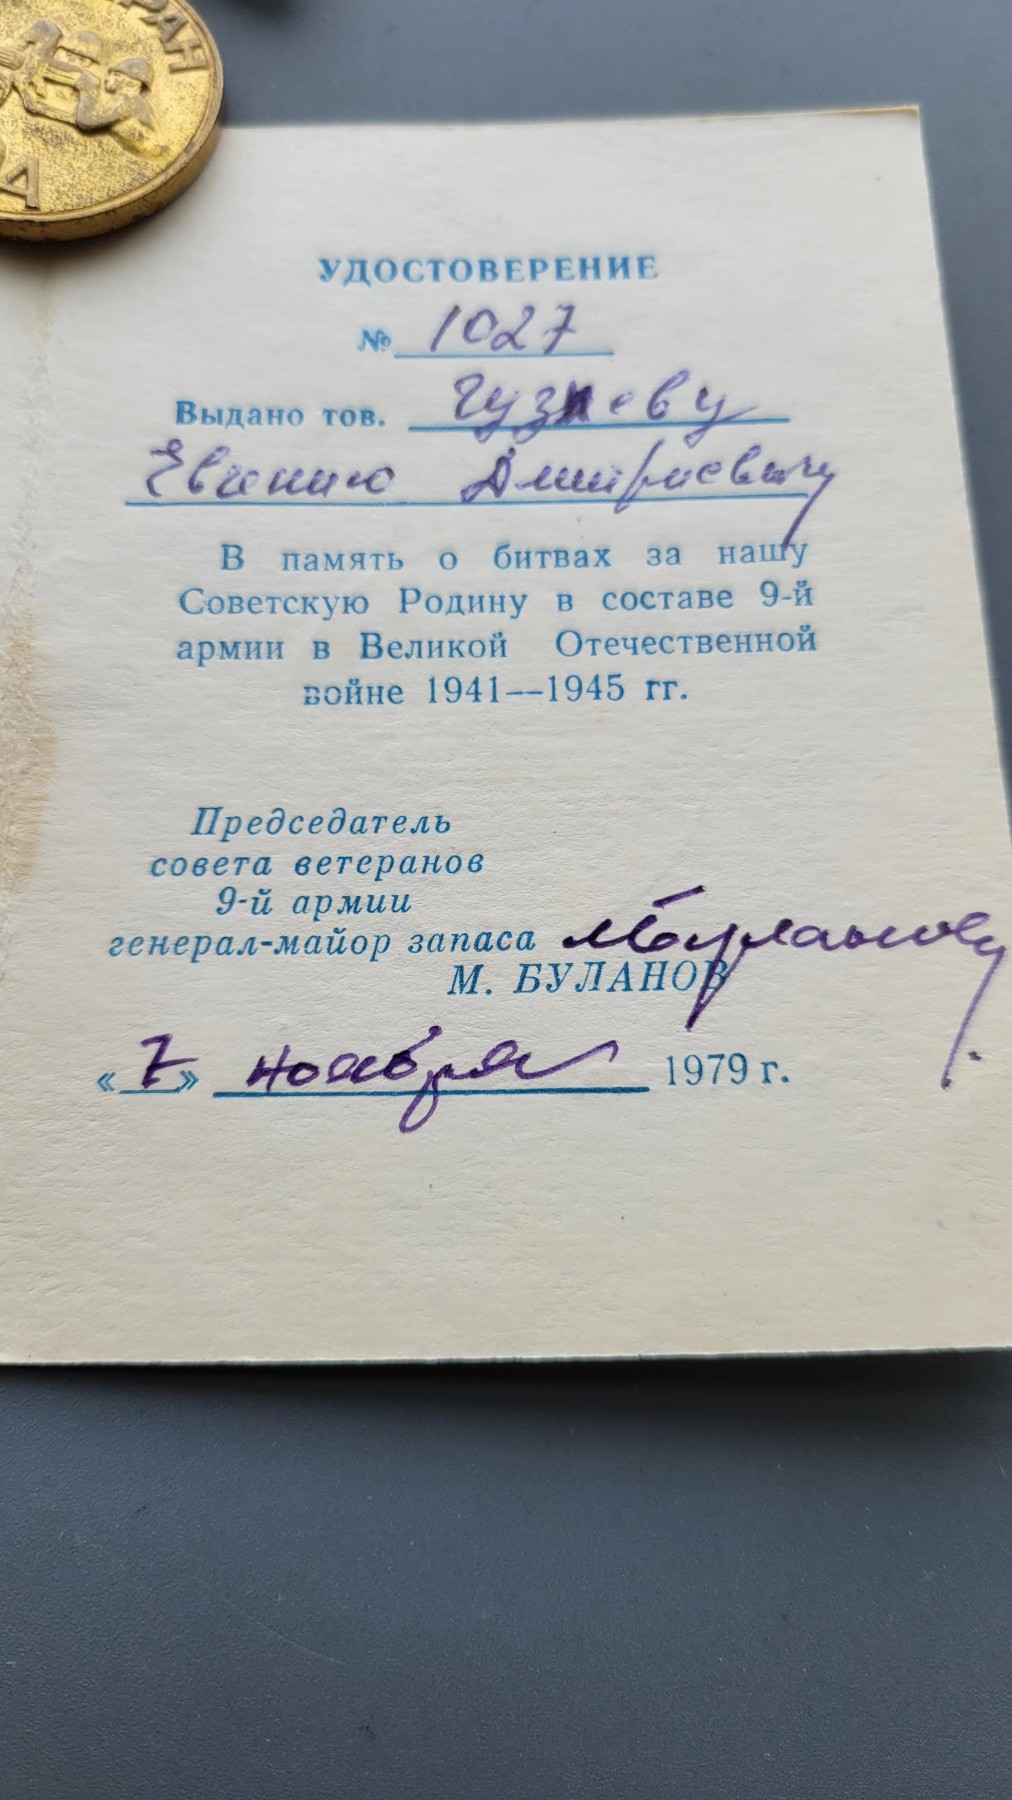 РАН
А
УДОСТОВЕРЕНИЕ
№ 1027
Выдано тов. Гузневу
Евгению Дмитриевичу
В память о битвах за нашу
Советскую Родину в составе 9-й
армии в Великой Отечественной
войне 1941—1945 гг.
Председатель
совета ветеранов
9-й армии
генерал-майор запаса МБуланов
М. БУЛАНОВ
«7» ноября 1979 г.